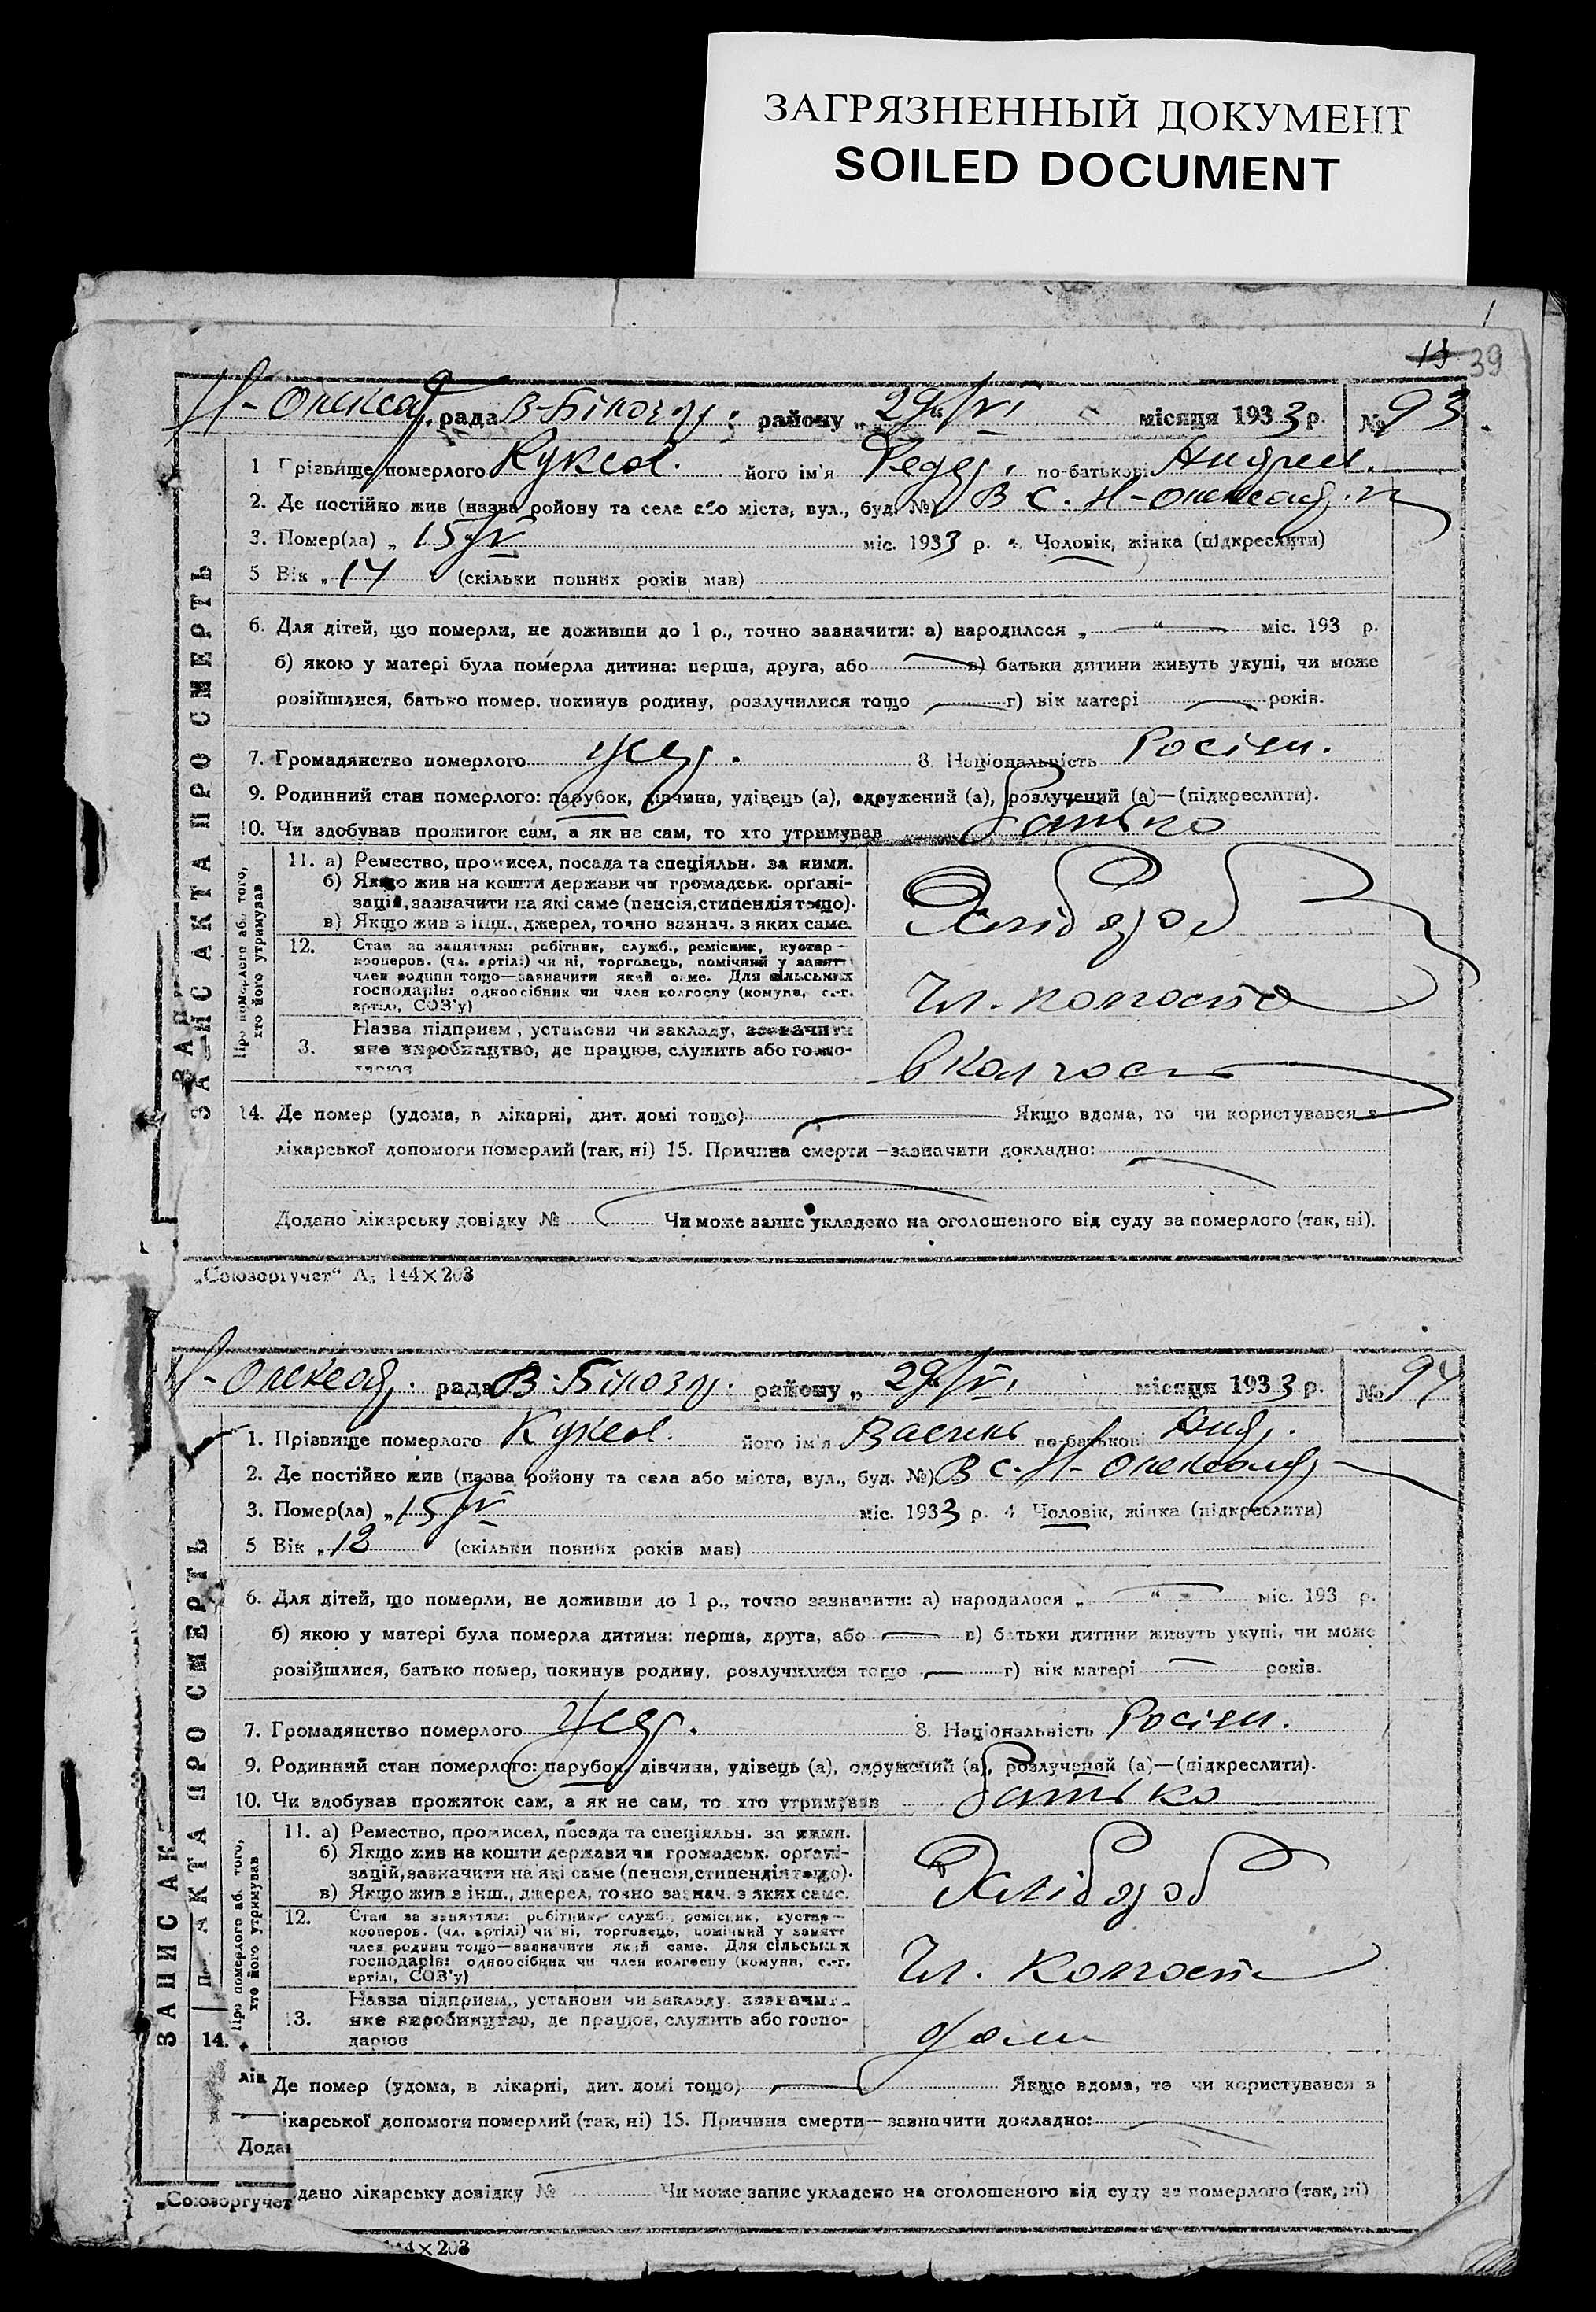 ЗАГРЯЗНЕННЫЙ ДОКУМЕНТ
SOILED DOCUMENT
13 39
Н-Олексад. рада В-Білозер. району „29“/VI місяця 1933 р. № 93
ЗАПИС АКТА ПРО СМЕРТЬ
1 Прізвище померлого Куксов. його ім'я Федер. по-батькові Андрєєв.
2. Де постійно жив (назва ройону та села або міста, вул., буд. №) В с. Н-Олександ.
3. Помер(ла) „15/IV міс. 1933 р. 4. Чоловік, жінка (підкреслити)
5 Вік „14 (скільки повних років мав)
6. Для дітей, що померли, не доживши до 1 р., точно зазначити: а) народилося „ “ міс. 193 р.
б) якою у матері була померла дитина: перша, друга, або в) батьки дитини живуть укупі, чи може
розійшлися, батько помер, покинув родину, розлучилися тощо г) вік матері років.
7. Громадянство померлого 8. Національність Росіян.
9. Родинний стан померлого: парубок, дівчина, удівець (а), одружений (а), розлучений (а)—(підкреслити).
10. Чи здобував прожиток сам, а як не сам, то хто утримував батько
Про померлого або того, хто його утримував
11. а) Ремество, промисел, посада та спеціяльн. за ними.
б) Якщо жив на кошти держави чи громадськ. орґані-
зацій, зазначити на які саме (пенсія, стипендія тощо).
в) Якщо жив з інш., джерел, точно зазнач. з яких саме.
Хлібороб
12. Стан за заняттям: робітник, служб., ремісник, кустар—
кооперов. (чл. артілі) чи ні, торговець, помічний у занятті
член родини тощо—зазначити який саме. Для сільських
господарів: одноосібник чи член колгоспу (комуни, с.-г.
артілі, СОЗ'у)
Чл. колгоспа
3. Назва підприєм., установи чи закладу, зазначити
яке виробництво, де працює, служить або госпо-
в колгосп
14. Де помер (удома, в лікарні, дит. домі тощо) Якщо вдома, то чи користувався з
лікарської допомоги померлий (так, ні) 15. Причина смерти—зазначити докладно:
Додано лікарську довідку № Чи може запис укладено на оголошеного від суду за померлого (так, ні).
„Союзоргучет“ А, 144×203
Н-Олексад. рада В-Білозер. району „29“/VI місяця 1933 р. № 94
ЗАПИС АКТА ПРО СМЕРТЬ
1. Прізвище померлого Куксов. його ім'я Василь по-батькові Анд.
2. Де постійно жив (назва ройону та села або міста, вул., буд. №) В с. Н-Олександ
3. Помер(ла) „15/IV міс. 1933 р. 4 Чоловік, жінка (підкреслити)
5 Вік „12 (скільки повних років мав)
6. Для дітей, що померли, не доживши до 1 р., точно зазначити: а) народилося „ “ міс. 193 р.
б) якою у матері була померла дитина: перша, друга, або в) батьки дитини живуть укупі, чи може
розійшлися, батько помер, покинув родину, розлучилися тощо г) вік матері років.
7. Громадянство померлого 8. Національність Росіян.
9. Родинний стан померлого: парубок, дівчина, удівець (а), одружений (а), розлучений (а)—(підкреслити).
10. Чи здобував прожиток сам, а як не сам, то хто утримував батько
Про померлого аб. того, хто його утримував
11. а) Ремество, промисел, посада та спеціяльн. за ними.
б) Якщо жив на кошти держави чи громадськ. орґані-
зацій, зазначити на які саме (пенсія, стипендія тощо).
в) Якщо жив з інш., джерел, точно зазнач. з яких саме.
Хлібороб
12. Стан за заняттям: робітник, служб., ремісник, кустар—
кооперов. (чл. артілі) чи ні, торговець, помічний у занятт
член родини тощо—зазначити який саме. Для сільських
господарів: одноосібник чи член колгоспу (комуни, с.-г.
артілі, СОЗ'у)
Чл. колгоспа
13. Назва підприєм., установи чи закладу, зазначит.
яке виробництво, де працює, служить або госпо-
дарює
14.
лік Де помер (удома, в лікарні, дит. домі тощо) Якщо вдома, то чи користувався з
ікарської допомоги померлий (так, ні) 15. Причина смерти—зазначити докладно:
Додан
дано лікарську довідку № Чи може запис укладено на оголошеного від суду за померлого (так, ні)
„Союзоргучет
144×203